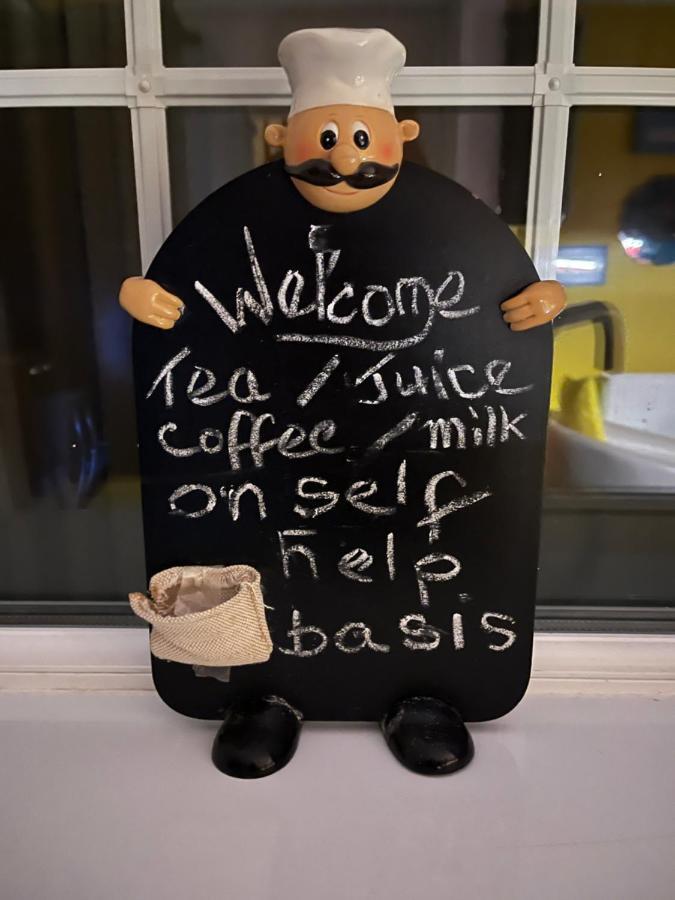 Welcome
Tea / Juice
coffee / milk
on self
help
basis